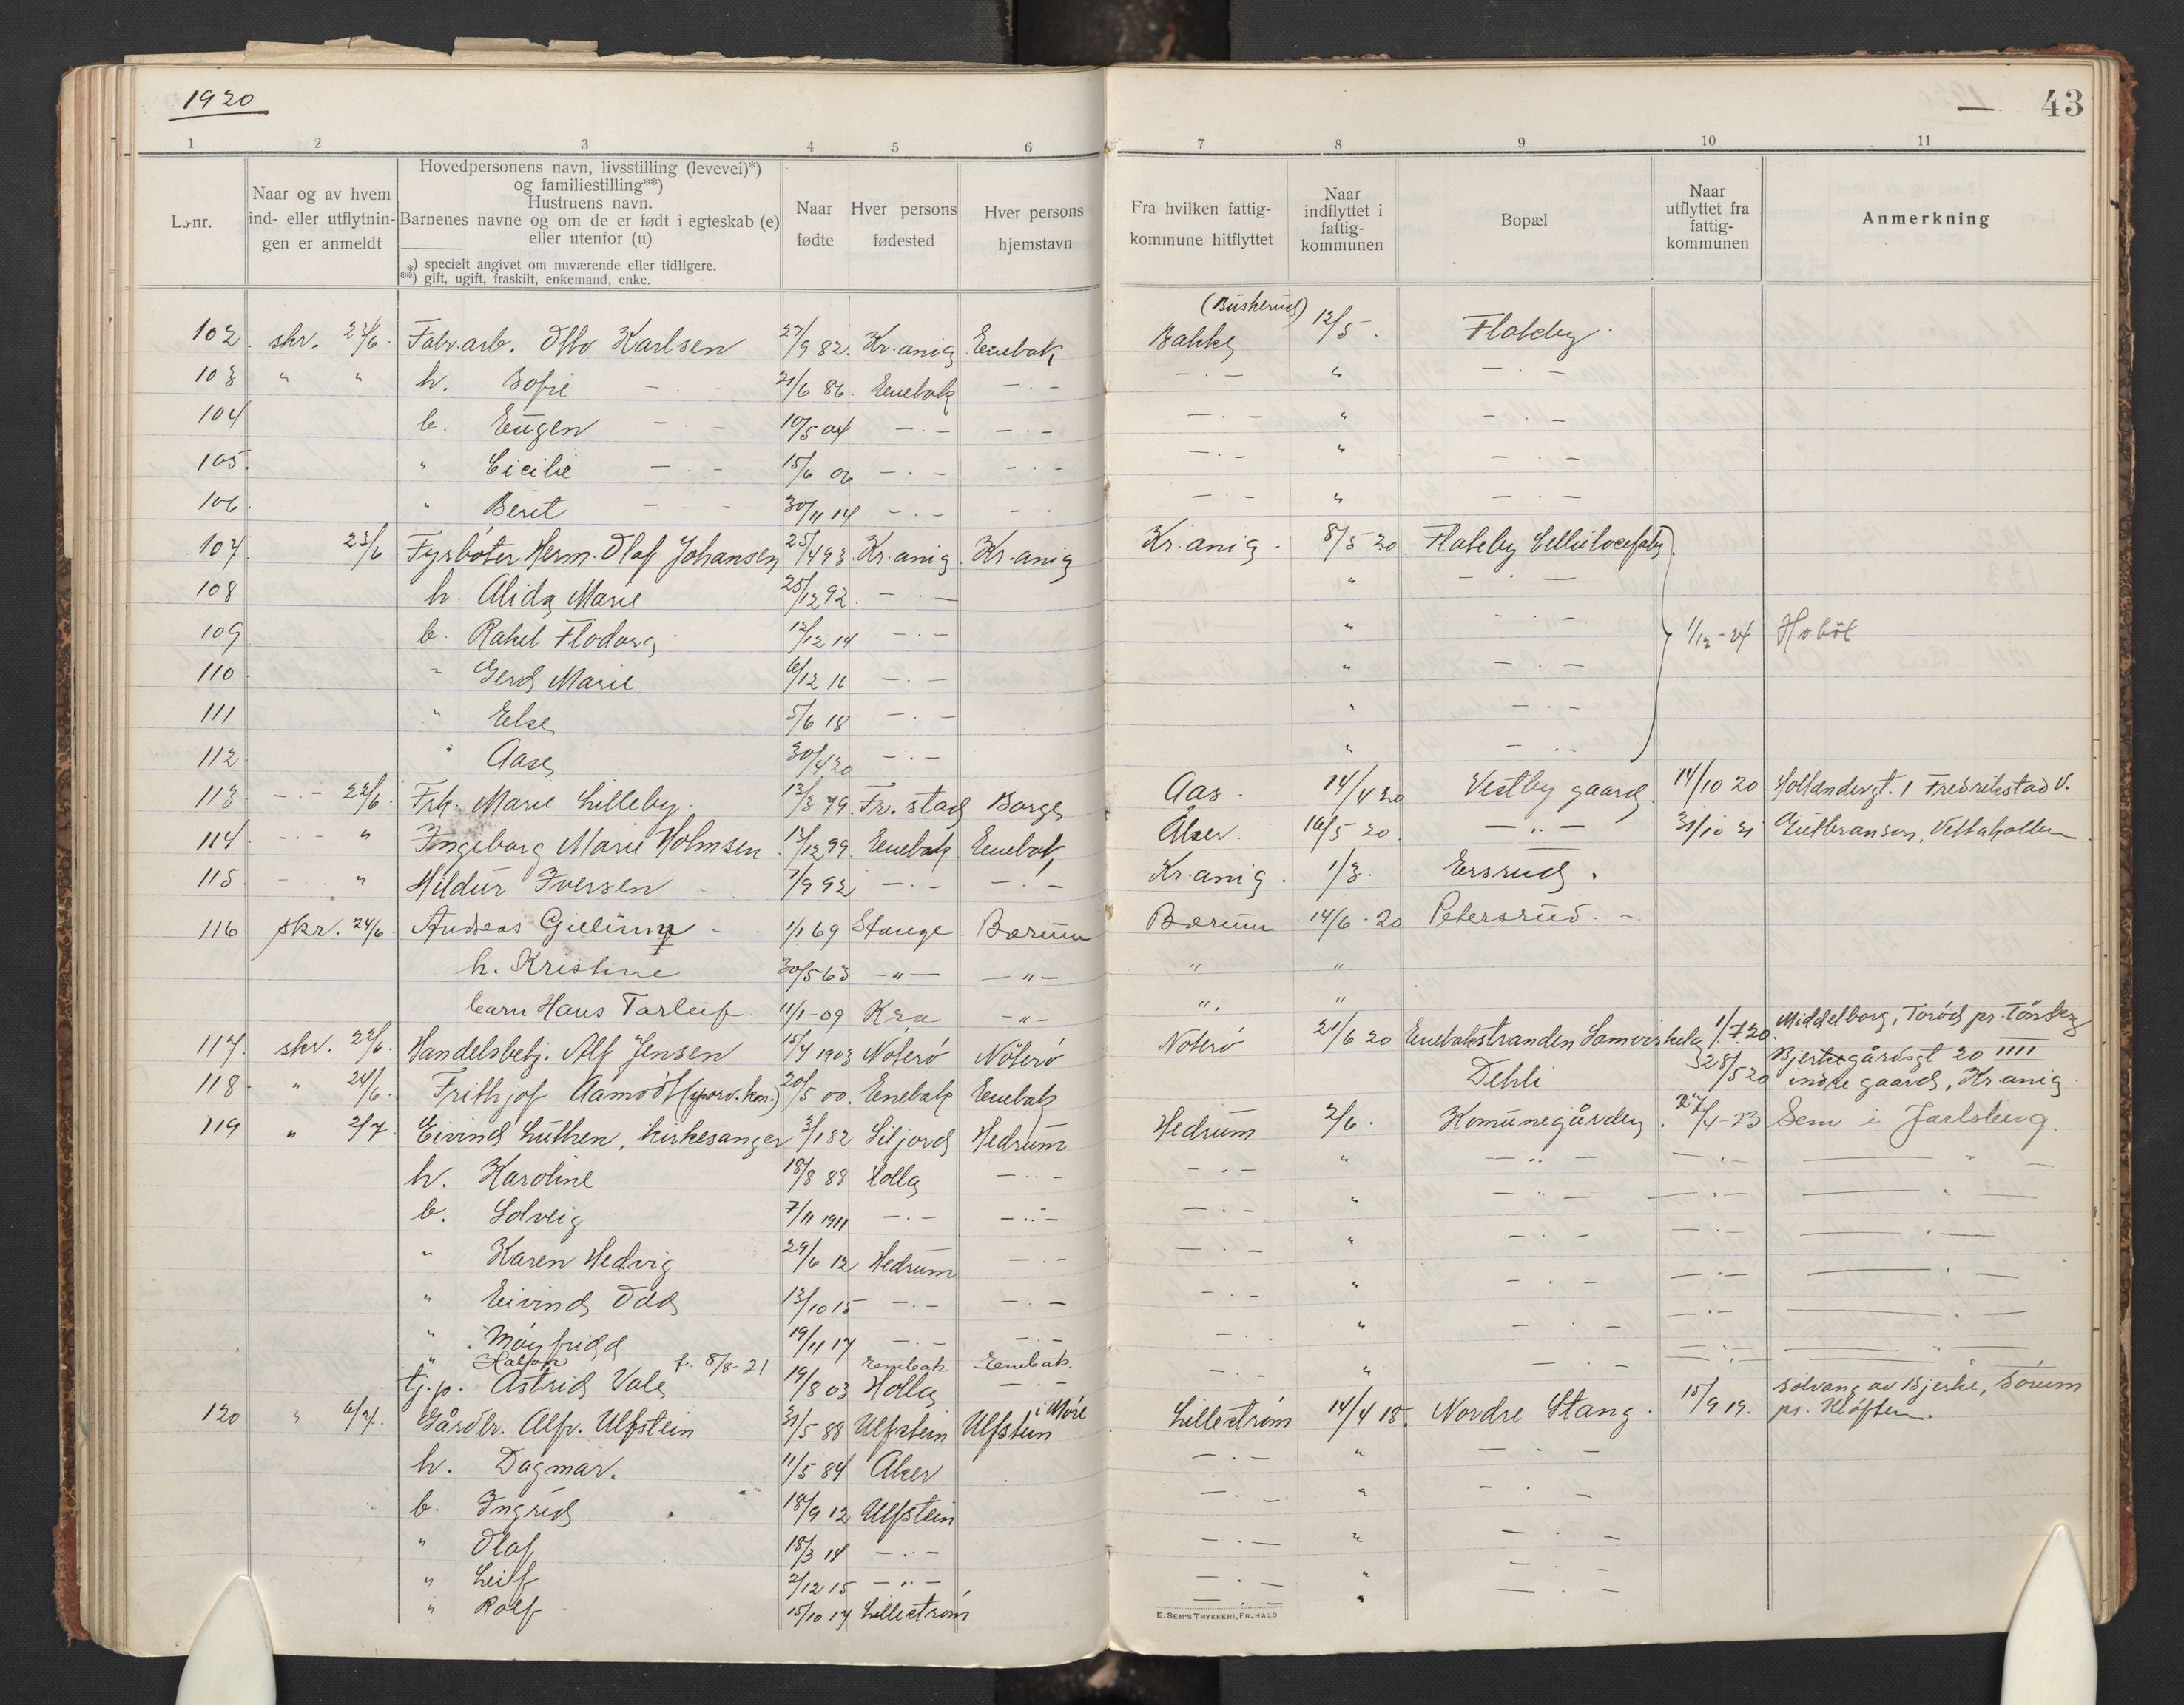 1920
43
1 2 3 4 5 6 7 8 9 10 11
L.-nr.
Naar og av hvem ind- eller utflytnin-gen er anmeldt
Hovedpersonens navn, livsstilling (levevei)*)
og familiestilling**)
Hustruens navn.
Barnenes navne og om de er født i egteskab (e)
eller utenfor (u)
*) specielt angivet om nuværende eller tidligere.
**) gift, ugift, fraskilt, enkemand, enke.
Naar fødte
Hver persons fødested
Hver persons hjemstavn
Fra hvilken fattig-kommune hitflyttet
Naar indflyttet i fattig-kommunen
Bopæl
Naar utflyttet fra fattig-kommunen
Anmerkning
(Buskerud)
102. skr. 23/6. Fabr.arb. Otto Karlsen 27/9 82. Kr.ania Enebak Bakke 12/5. Flateby.
103 " " h. Sofie — . - 21/6 86. Enebak — . — — . — " — . —
104 b. Eugen — . - 10/5 04 — . — — . — — . — " — . —
105. " Cicilie — . - 15/6 06 — . — — . — — . — " — . —
106. " Berit — . - 30/11 14 — . — — . — . — " — . —
107. 23/6 Fyrbøter Herm. Olaf Johansen 25/4 93. Kr.ania Kr.ania Kr.ania. 8/5 20. Flateby Cellulosefab.
108 h. Alida Marie 25/12 92. — . — " — . —
109. b. Rakel Flodora 12/12 14 — . — " — . — 1/12-24 Hobøl
110. " Gerd Marie 6/12 16 — . — " — . —
111 " Else 5/6 18 — . — " — . —
112 " Aase 30/4 20 — . — " — . —
113. — . — 22/6. Frk. Marie Lilleby. 13/3 79. Fr. stad Borge Aas. 14/4 20 Vestby gaard 14/10 20 Hollendergt. 1 Fredrikstad V.
114. — . — " Ingeborg Marie Holmsen. 13/12 99. Enebak Enebak Aker. 16/5 20. — " — 31/10 21 Gulbransen, Vettakollen
115. — . — " Hildur Iversen 7/9 92 — . — — . — Kr.ania. 1/3. Ersrud.
116 skr. 24/6 Andreas Giellum 1/1 69 Stange Bærum Bærum 14/6-20 Petersrud. -
h. Kristine 30/5 63 — " — — " — " "
barn Hans Torleif 11/1-09 Kra — " — " "
117. skr. 22/6. Handelsbetj. Alf Jensen 15/4 1903 Nøterø Nøterø Nøterø 21/6 20 Enebakstranden Samvirkelag 1/7 20. Middelborg, Torød pr. Tønsberg
118. " 24/6. Frithjof Aamodt 20/5 00. Enebak Enebak Dehli 28/5 20 Bjerkegårdsgt 20 IIII
indre gaard, Kr.ania.
119 " 2/7. Eivind Luthen, kirkesanger 3/1 82 Siljord Hedrum Hedrum 2/6. Komunegården. 27/4-23 Sem i Jarlsberg.
h. Karoline 18/8 88 Holla — . — — . — " — " — — . — — " —
b. Solveig 7/11 1911 — . — — . — — . — " — " — — . — — " —
" Karen Hedvig 29/6 12 Hedrum — . — — . — " — . — — . — — . —
" Eivind Odd 13/10 15 — . — — . — — . — " — . — — . — — . —
" Møyfridd 19/11 17 — . — — . — — . — " — . — — . — — . —
" Halfon f. 8/8-21 Enebak Enebak.
tj.p. Astrid Vale 19/8 03 Holla — . — — . — " — . — — . —
120 " 6/7. Gårdbr. Alfr. Ulfstein 31/5 88 Ulfstein Ulfstein i Møre Lillestrøm 14/4 18. Nordre Stang. 15/9 19. Solvang av Bjerke, Sørum
pr. Kløften.
h. Dagmar. 11/5 84 Aker — . — " — . —
b. Ingrid 18/9 12 Ulfstein — . — " — . —
" Olaf 18/3 14 — . — — . — " — . —
" Leif 2/12 15 — " — — . — " — . —
" Rolf 15/10 17 Lillestrøm — . — " — . —
E. SEM'S TRYKKERI, FR.HALD